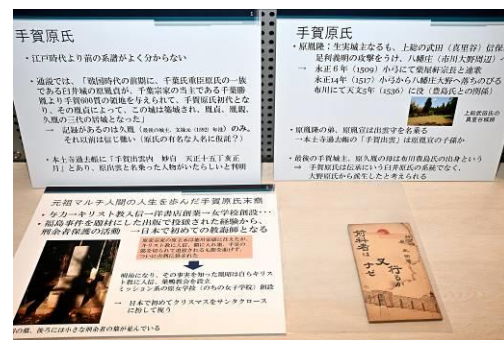 手賀原氏
・江戸時代より前の系譜がよく分からない
・通説では、「戦国時代の前期に、千葉氏重臣原氏の一族
である臼井城の原胤貞が、千葉宗家の当主である千葉勝
胤より手賀600貫の領地を与えられて、手賀原氏初代とな
り、その地点によって、この城は築城され、胤貞、胤親、
久胤の三代の居城となった」
→ 記録があるのは久胤
のみ。
それ以前は信じ難い(原氏の有名な人名に仮託か)
・本土寺過去帳に「手賀出雲内 妙白 天正十五丁亥正
月」とあり、原出雲と名乗った人物がいたらしいと判明
手賀原氏
・原胤隆:生実城主なるも、上総の武田(真里谷)信保
足利義明の攻撃をうけ、八幡庄(市川大野周辺)へ
→ 永正6年(1509)小弓にて柴屋軒宗長と連歌
永正14年(1517)小弓から八幡大野へ落ちのびる
布川にて天文5年(1536)に没(豊島氏との関係)
・原胤隆の弟、原胤宣は出雲守を名乗る
→本土寺過去帳の「手賀出雲」は原胤宣の子孫か
・最後の手賀城主、原久胤の母は布川豊島氏の出身という
→ 手賀原氏は伝承にいう臼井原氏の系統でなく、
大野原氏から派生したと考えられる
元祖マルチ人間の人生を歩んだ手賀原氏末裔
・与力→キリスト教入信→洋書店創業→女学校創設…
・福島事件を題材にした出版で投獄された経験から、
刑余者保護の活動 →日本で初めての教誨師となる
明治になり、その事実を知った
キリスト教に入信、
ミッション系の原女学校(のちの女子学院)創設
→ 日本で初めてクリスマスをサンタクロース
に扮して祝う
前科者は
ナゼ
又行